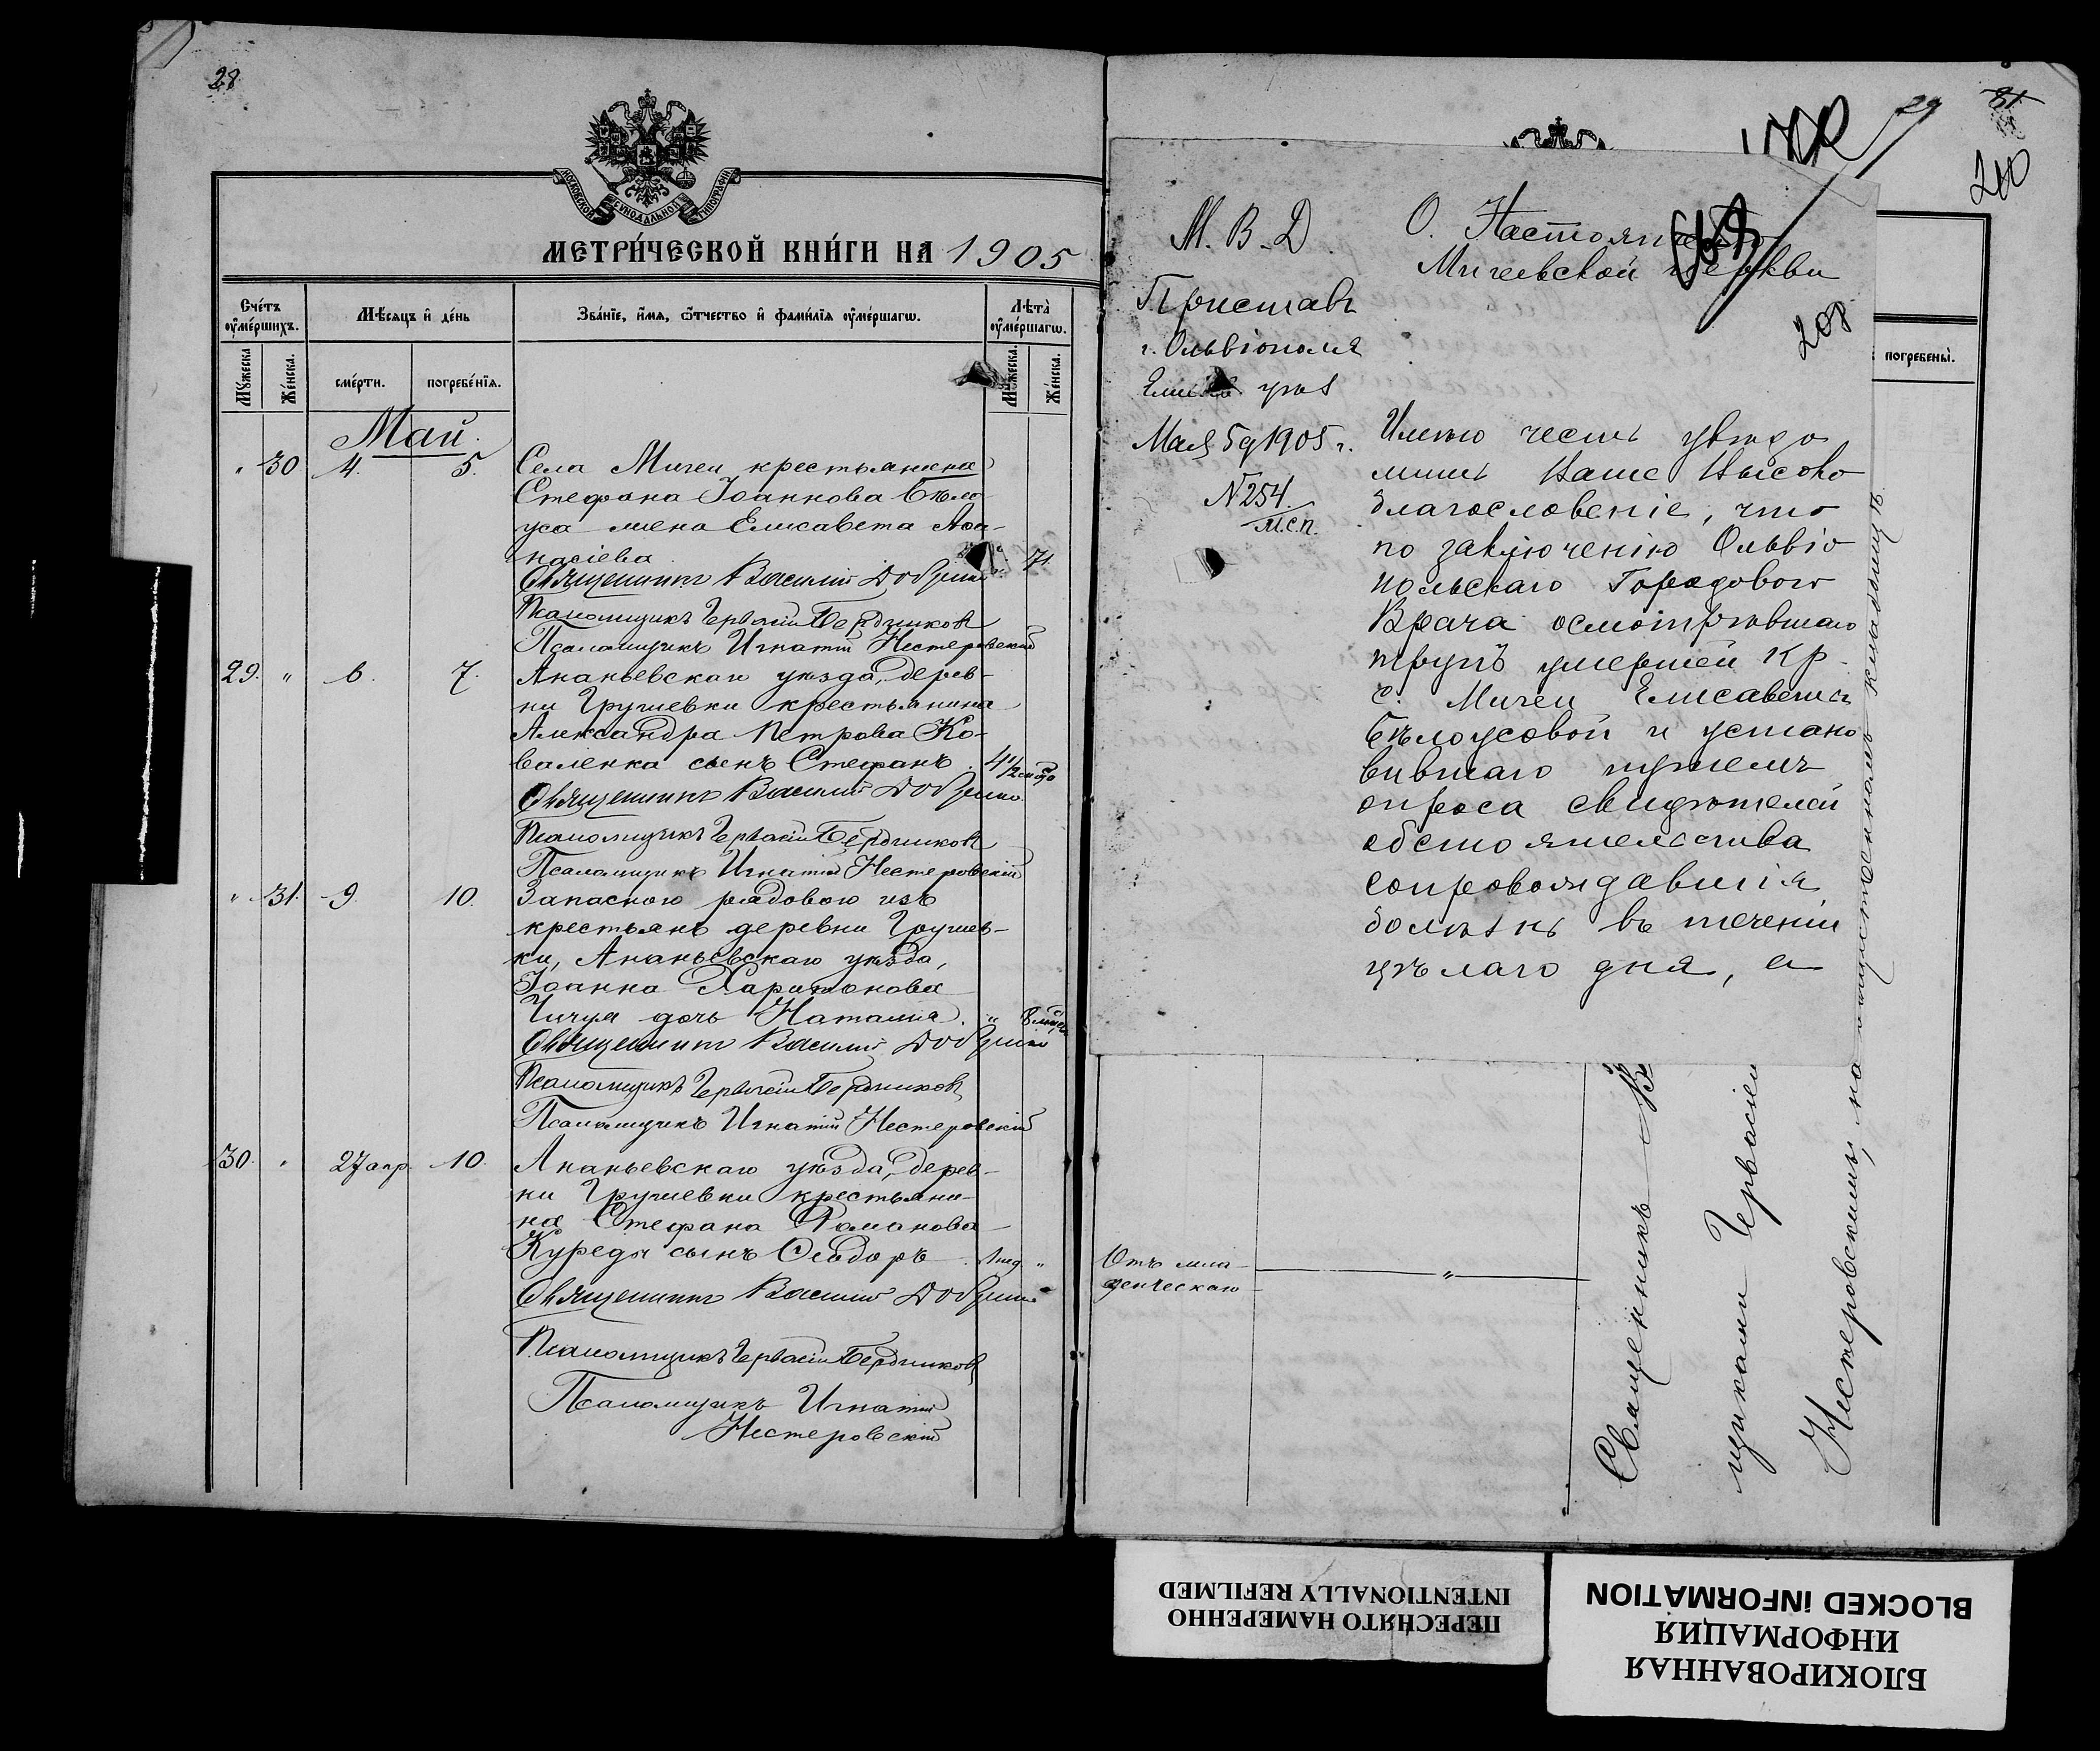 28
МОСКОВСКОЙ СѴНОДАЛЬНОЙ ТИПОГРАФІИ
МЕТРИ́ЧЕСКОЙ КНИ́ГИ НА 1905
Сче́тъ ᲂу҆ме́ршихъ.
Мѣ́сяцъ и҆ де́нь
Зва́нїе, и҆́мя, ѻ҆́тчество и҆ фами́лїя ᲂу҆ме́ршагѡ.
Лѣ́та ᲂу҆ме́ршагѡ.
Мꙋ́жеска
Же́нска.
сме́рти.
погребе́нїя.
Мꙋ́жеска.
Же́нска.
Май.
" 30 4. 5. Села Мигеи крестьянина
Стефана Іоаннова Бѣло-
уса жена Елисавета Аѳа-
насіева " 71
Священникъ Василій
Псаломщикъ Гервасій Бердниковъ
Псаломщикъ Игнатій Нестеровскій
29. " 6. 7. Ананьевскаго уѣзда, дерев-
ни Грушевки крестьянина
Александра Петрова Ко-
валенка сынъ Стефанъ. 4½
Священникъ Василій
Псаломщикъ Гервасій Бердниковъ
Псаломщикъ Игнатій Нестеровскій
" 31. 9. 10. Запасного рядового изъ
крестьянъ деревни Грушев-
ки, Ананьевскаго уѣзда,
Іоанна Харитонова
Чичул дочь Наталія. " 8 мѣс.
Священникъ Василій
Псаломщикъ Гервасій Бердниковъ
Псаломщикъ Игнатій Нестеровскій
30. " 27 апр. 10. Ананьевскаго уѣзда, дерев-
ни Грушевки крестьяни-
на Стефана Романова
Куреды сынъ Сидоръ. 1 нед "
Священникъ Василій
Псаломщикъ Гервасій Бердниковъ
Псаломщикъ Игнатій
Нестеровскій
29
31
210
208
погребены̀.
М. В. Д
Приставъ
г. Ольвіополя
Елис. уѣз
Мая 5 д 1905 г.
N 254.
М.С.П.
О. Настоятелю
Мигеевской церкви
Имѣю честь увѣдо
мить Ваше Высоко
благословеніе, что
по заключенію Ольвіо
польскаго Городового
Врача осмотрѣвшаго
трупъ умершей кр.
с. Мигеи Елисаветы
Бѣлоусовой и устано
вившаго путемъ
опроса свидѣтелей
обстоятельства
сопровождавшія
болѣзнь въ теченіи
цѣлаго дня, а
Отъ мла-
денческаго
"
Священникъ
щиками Гервасіем
Нестеровскимъ, на кладбищѣ
ПЕРЕСНЯТО НАМЕРЕННО
INTENTIONALLY REFILMED
БЛОКИРОВАННАЯ
ИНФОРМАЦИЯ
BLOCKED INFORMATION